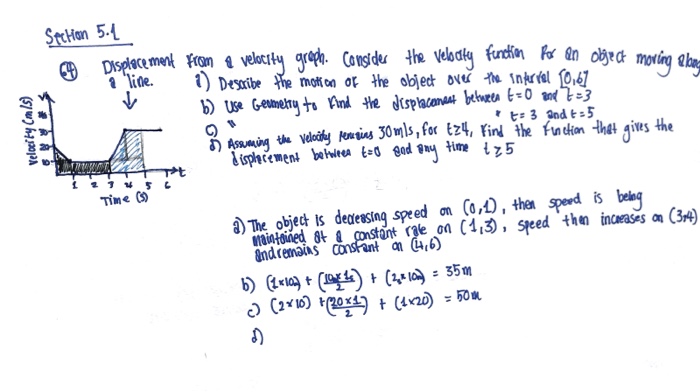 Section 5.1
64 Displacement from a velocity graph. Consider the velocity function for an object moving along
a line.
a) Describe the motion of the object over the interval [0,6]
b) Use Geometry to find the displacement between t=0 and t=3
c) " " t=3 and t=5
d) Assuming the velocity remains 30m/s, for t≥4, find the function that gives the
displacement between t=0 and any time t≥5
Velocity (m/s)
V
30
20
10
1 2 3 4 5 6
t
Time (s)
a) The object is decreasing speed on (0,1), then speed is being
maintained at a constant rate on (1,3), speed then increases on (3,4)
and remains constant on (4,6)
b) (1×10) + (10×1/2) + (2×10) = 35m
c) (2×10) + (20×1/2) + (1×20) = 50m
d)